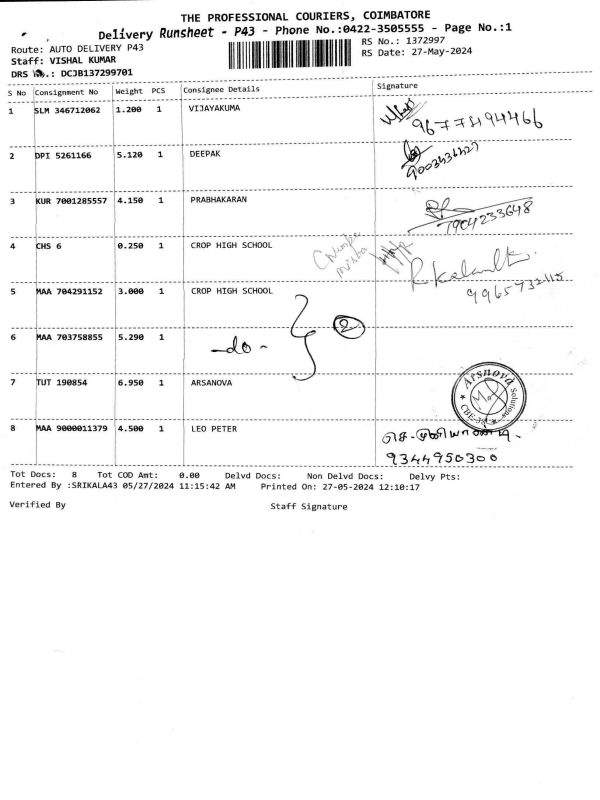 THE PROFESSIONAL COURIERS, COIMBATORE
Delivery Runsheet - P43 - Phone No.:0422-3505555 - Page No.:1
Route: AUTO DELIVERY P43
RS No.: 1372997
Staff: VISHAL KUMAR
RS Date: 27-May-2024
DRS No.: DCJB137299701
S No Consignment No Weight PCS Consignee Details Signature
1 SLM 346712062 1.200 1 VIJAYAKUMA
2 DPI 5261166 5.120 1 DEEPAK
3 KUR 7001285557 4.150 1 PRABHAKARAN
7904233648
4 CHS 6 0.250 1 CROP HIGH SCHOOL
5 MAA 704291152 3.000 1 CROP HIGH SCHOOL
9965732115
2
6 MAA 703758855 5.290 1 -do-
7 TUT 190854 6.950 1 ARSANOVA
Arsnova Solutions
8 MAA 9000011379 4.500 1 LEO PETER
செ-முனியாண்டி
9344950300
Tot Docs: 8 Tot COD Amt: 0.00 Delvd Docs: Non Delvd Docs: Delvy Pts:
Entered By :SRIKALA43 05/27/2024 11:15:42 AM Printed On: 27-05-2024 12:10:17
Verified By Staff Signature